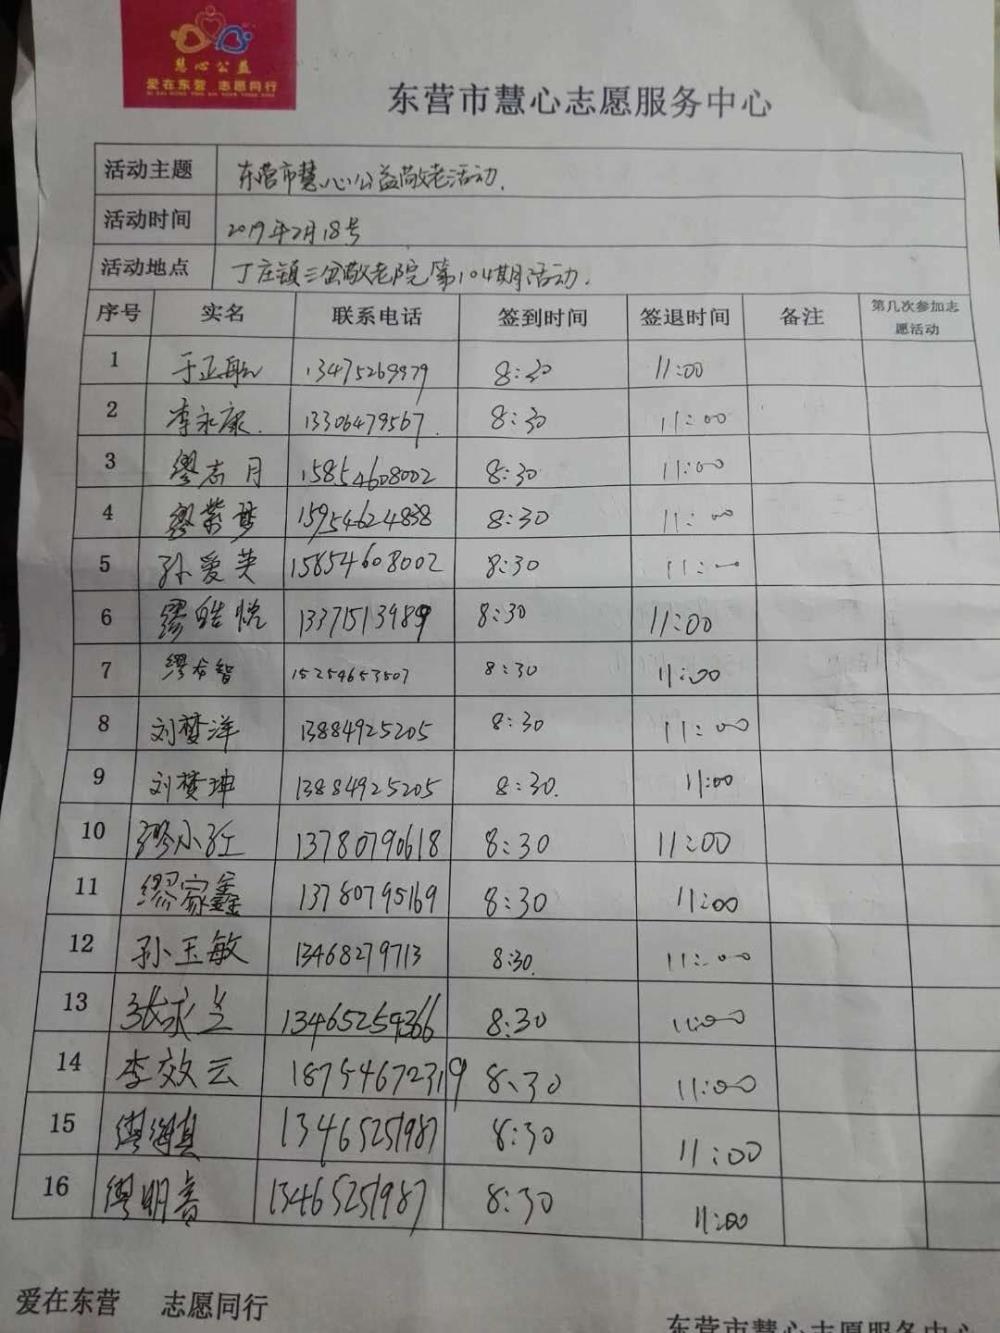 慧心公益
爱在东营 志愿同行
东营市慧心志愿服务中心
活动主题 东营市慧心公益敬老活动.
活动时间 2019年2月18号
活动地点 丁庄镇三岔敬老院第104期活动.
序号 实名 联系电话 签到时间 签退时间 备注 第几次参加志愿活动
1 于正航 13475269979 8:30 11:00
2 李永康. 13306479567. 8:30 11:00
3 缪志月 15854608002 8:30 11:00
4 缪紫梦 15954624838 8:30 11:00
5 孙爱英 15854608002 8:30 11:00
6 缪皓悦 13371513989 8:30 11:00
7 缪右智 15254653507 8:30 11:00
8 刘梦洋 13884925205 8:30 11:00
9 刘梦坤 13884925205 8:30. 11:00
10 缪小红 13780790618 8:30 11:00
11 缪家鑫 13780795169 8:30 11:00
12 孙玉敏 13468279713 8:30. 11:00
13 张永兰 13465254366 8:30 11:00
14 李效云 18754672319 8:30 11:00
15 缪海真 13465251987 8:30 11:00
16 缪明音 13465251987 8:30 11:00
爱在东营 志愿同行
东营市慧心志愿服务中心